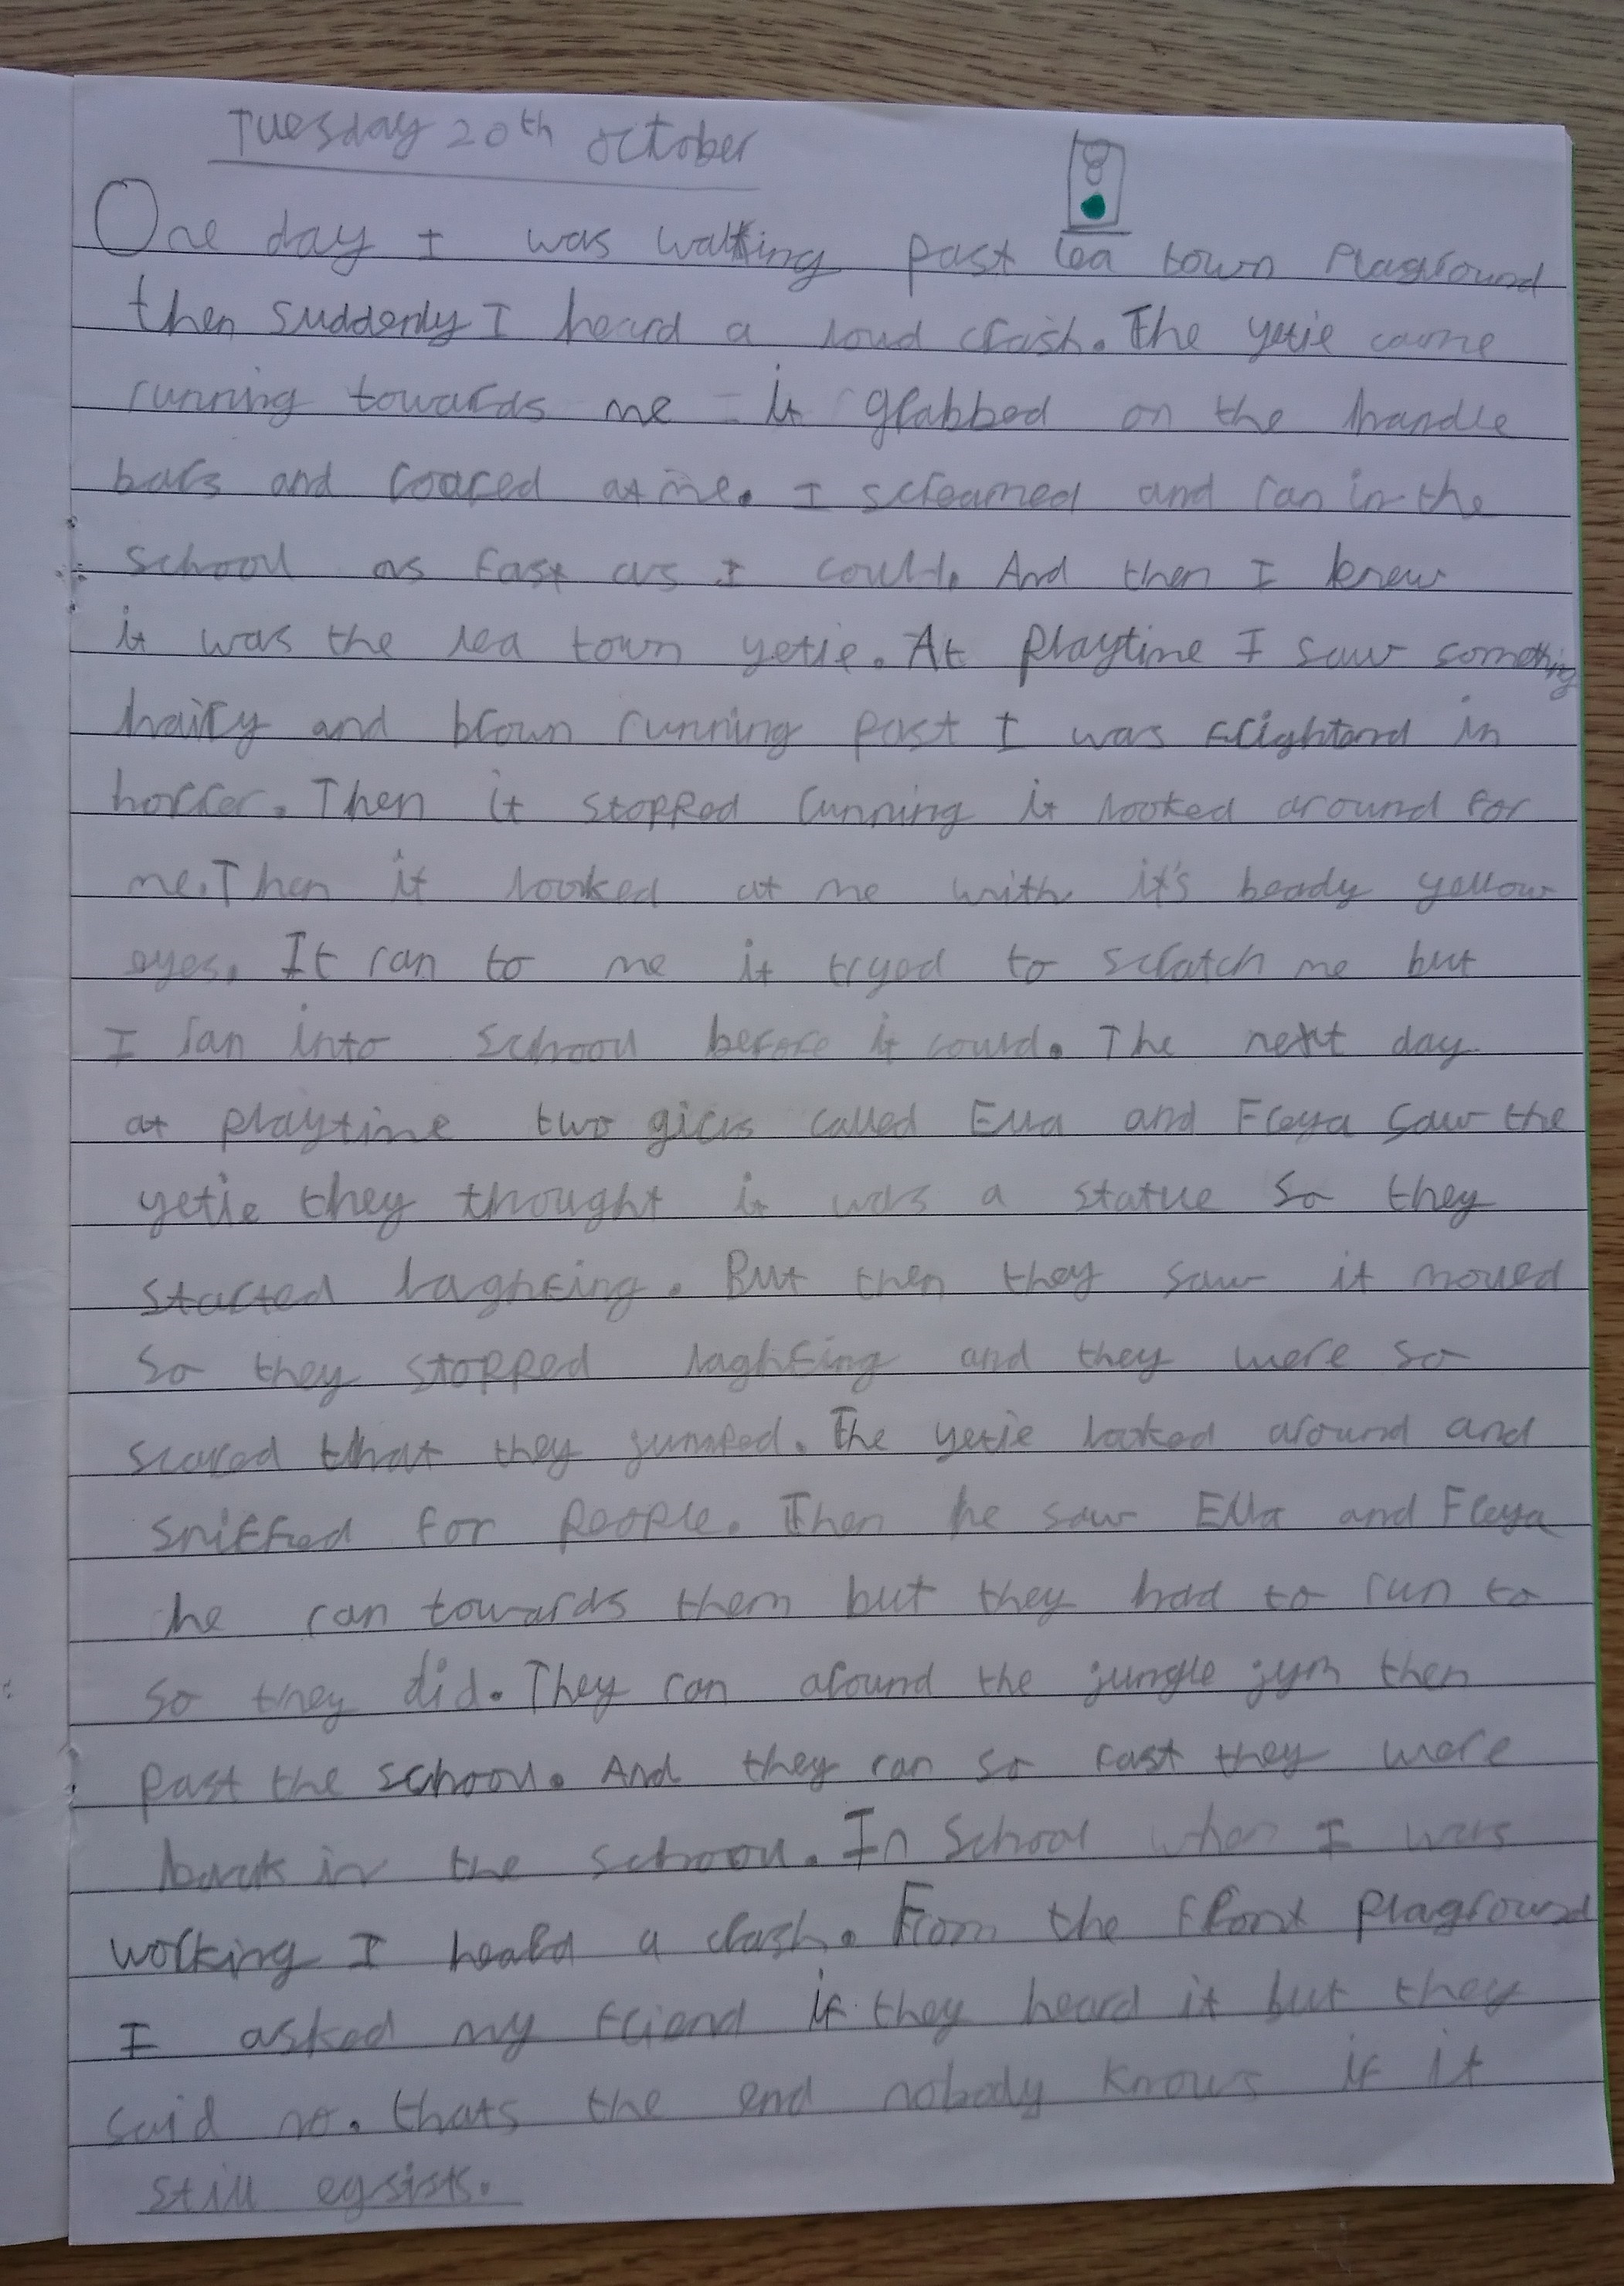 Tuesday 20th october
One day I was walking past lea town Playground
then suddenly I heard a loud crash. The yetie came
running towards me it grabbed on the handle
bars and roared at me. I screamed and ran in the
school as fast as I could. And then I knew
it was the lea town yetie. At Playtime I saw something
hairy and brown running past I was frightand in
horrer. Then it stopped running it looked around for
me. Then it looked at me with it's beady yellow
eyes. It ran to me it tryed to scratch me but
I ran into school before it could. The next day
at playtime two girls called Ella and Freya saw the
yetie they thought it was a statue so they
started laghfing. But then they saw it moved
so they stopped laghfing and they were so
scared that they jumped. The yetie looked around and
sniffed for people. Then he saw Ella and Freya
he ran towards them but they had to run to
so they did. They ran around the jungle gym then
past the school. And they ran so fast they were
back in the school. In School when I was
working I heard a crash. From the front Playground
I asked my friend if they heard it but they
said no. thats the end nobody knows if it
still egsists.